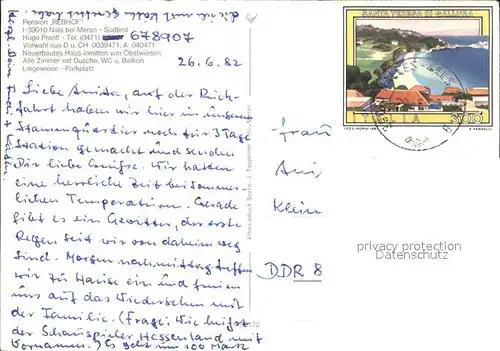 Pension „REBHOF"
I-39010 Nals bei Meran - Südtirol
Hugo Prantl - Tel. (0471) 678907
Vorwahl aus D u. CH 0039471, A 040471
Neuerbautes Haus inmitten von Obstwiesen.
Alle Zimmer mit Dusche, WC u. Balkon
Liegewiese - Parkplatz
26.6.82
Liebe Anita, auf der Rück-
fahrt haben wir hier in unserem
Stammquartier noch für 3 Tage
Station gemacht und senden
Dir liebe Grüße. Wir hatten
eine herrliche Zeit bei sommer-
lichen Temperaturen. Gerade
gibt es ein Gewitter, der erste
Regen seit wir von daheim weg
sind. Morgen nachmittag treffen
wir zu Hause ein und freuen
uns auf das Wiedersehen mit
der Familie. (Frage: Wie heißt
der Schauspieler Hessenland mit
Vornamen.) Es geht um 100 Mark
SANTA TERESA DI GALLURA
ITALIA
300
Frau
Klein
DDR 8
privacy protection
Datenschutz